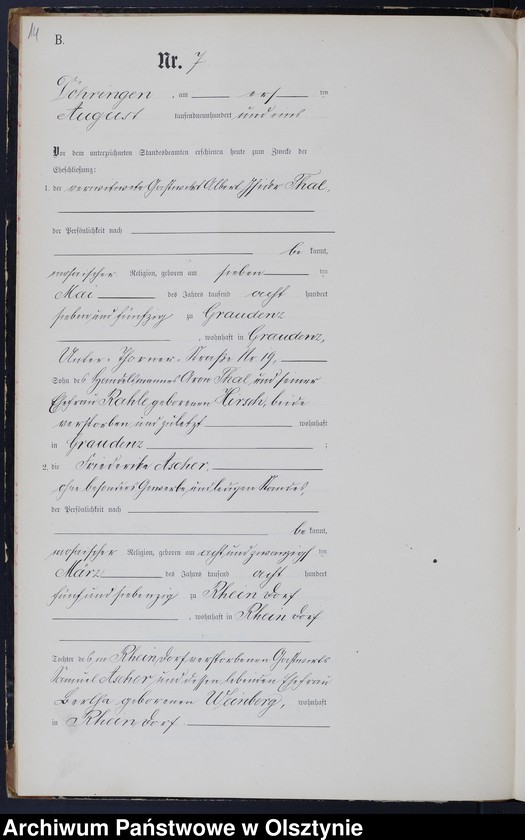 14
B.
Nr. 7
Döhringen, am erſ ten
Auguſt tauſendneunhundert und eins
Vor dem unterzeichneten Standesbeamten erſchienen heute zum Zwecke der
Eheſchließung:
1. der verwitwete Gaſtwirt Albert Iſidor Thal,
der Perſönlichkeit nach
be kannt,
moſaiſcher Religion, geboren am ſieben ten
Mai des Jahres tauſend acht hundert
ſieben und fünfzig zu Graudenz
, wohnhaft in Graudenz,
Unter-Thorner-Straße Nr 19,
Sohn des Handelsmannes Aron Thal und ſeiner
Ehefrau Rahle geborenen Hirsch, beide
verſtorben und zuletzt wohnhaft
in Graudenz ;
2. die Friederike Ascher,
ohne beſonderes Gewerbe, und ledigen Standes,
der Perſönlichkeit nach
be kannt,
moſaiſcher Religion, geboren am acht und zwanzigſ ten
März des Jahres tauſend acht hundert
fünf und ſiebenzig zu Rhein Dorf
, wohnhaft in Rhein Dorf
Tochter des in Rhein Dorf verſtorbenen Gaſtwirts
Samuel Ascher, und deſſen lebenden Ehefrau
Bertha geborenen Weinberg, wohnhaft
in Rhein Dorf
Archiwum Państwowe w Olsztynie